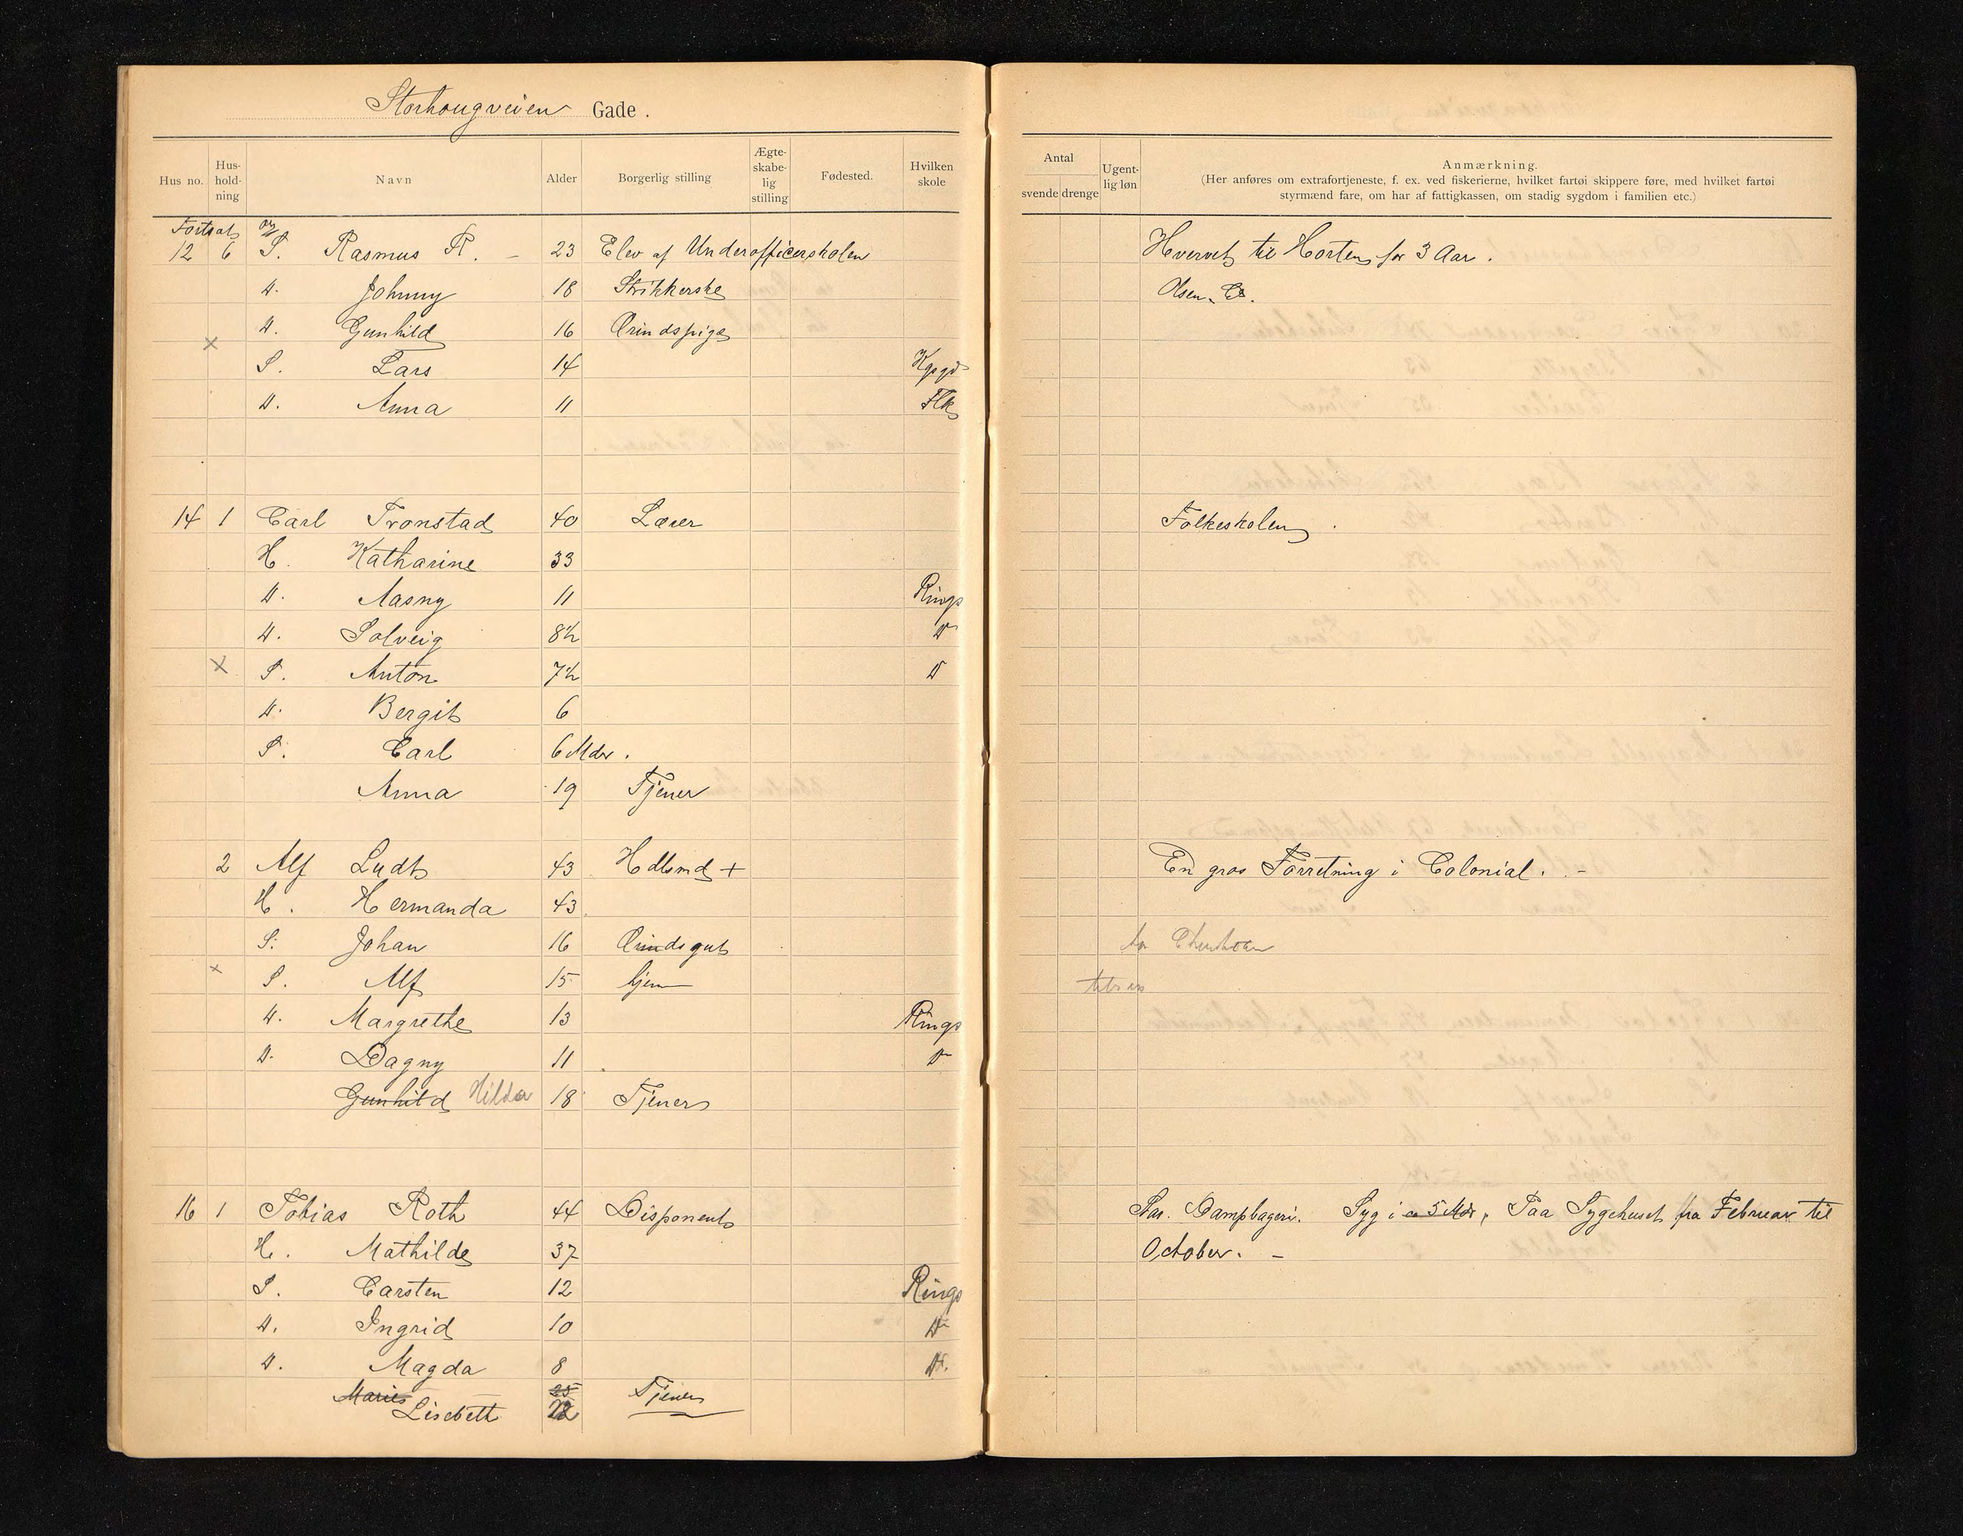 Storhougveien Gade.
Hus no. Hus-hold-ning Navn Alder Borgerlig stilling Ægte-skabe-lig stilling Fødested. Hvilken skole Antal svende drenge Ugent-lig løn Anmærkning. (Her anføres om extrafortjeneste, f. ex. ved fiskerierne, hvilket fartøi skippere føre, med hvilket fartøi styrmænd fare, om har af fattigkassen, om stadig sygdom i familien etc.)
Fortsat
12 6 S. Rasmus R. - 23 Elev af Underofficerskolen Hvervet til Horten for 3 Aar.
D. Johnny 18 Strikkerske Olsen
D. Gunhild 16 Ærindspige
x
S. Lars 14 Kgsgd
D. Anna 11 Flk
14 1 Carl Tronstad 40 Lærer Folkeskolen.
H. Katharine 33
D. Aasny 11 Rings
D. Solveig 8½ D
x S. Anton 7½ D
D. Bergit 6
S. Carl 6 Mdr.
Anna 19 Tjener
2 Alf Ludt 43 Hdlsmd + En gros Forretning i Colonial. -
H. Hermanda 43
S. Johan 16 Ærindsgut
x S. Alf 15 hjem
D. Margrethe 13 Rings
D. Dagny 11 D
Gunhild Hilda 18 Tjener
16 1 Tobias Roth 44 Disponent Stav. Dampbageri. Syg i ca 5 Mdr, Paa Sygehuset fra Februar til
H. Mathilde 37 October. -
S. Carsten 12 Rings
D. Ingrid 10 D
D. Magda 8 D.
Marie 25 Tjener
Lisebeth 22